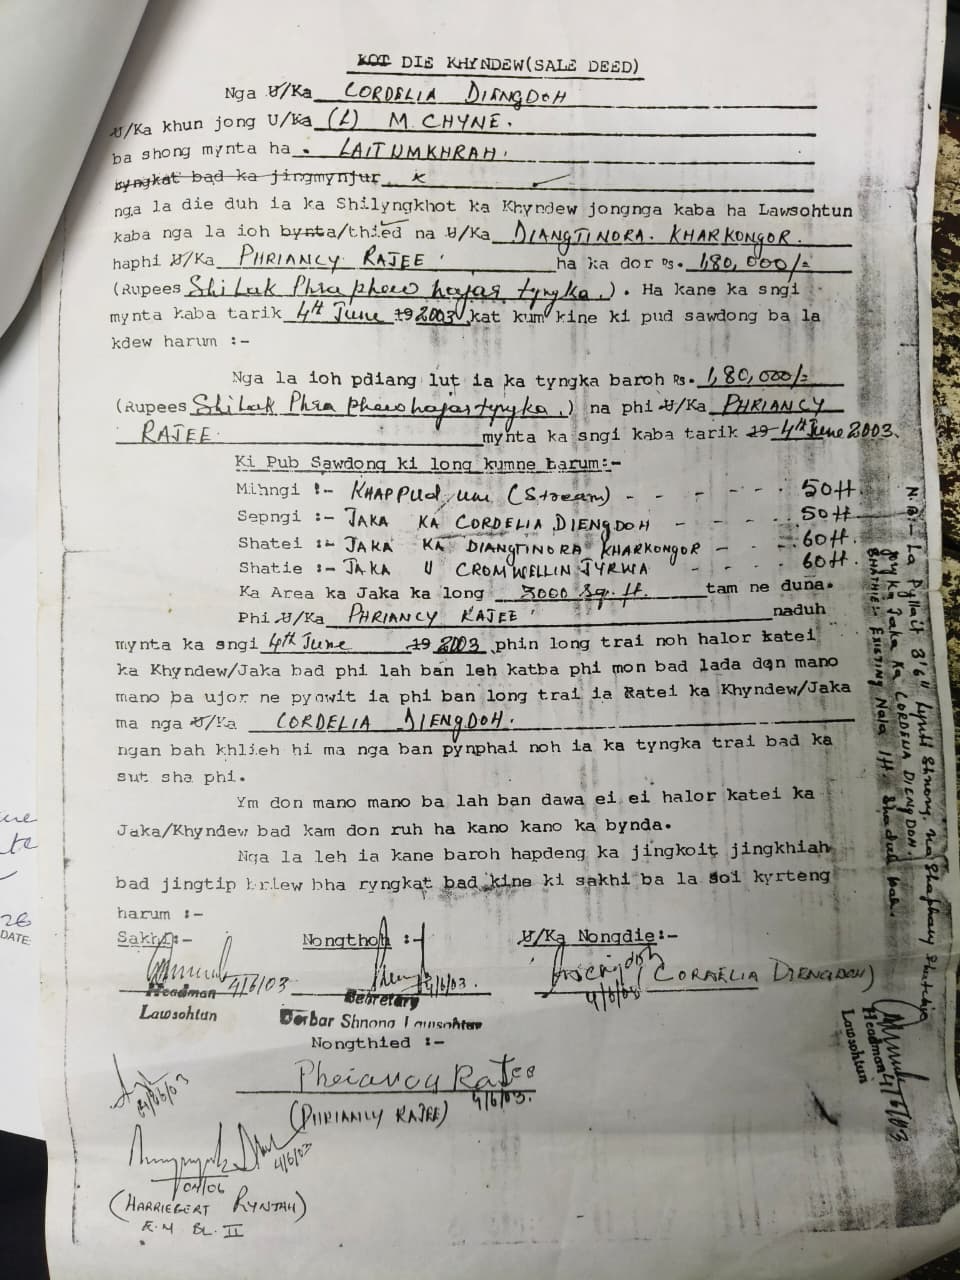 KOT DIE KHYNDEW(SALE DEED)
Nga U/Ka CORDELIA DIENGDOH
U/Ka khun jong U/Ka (L) M. CHYNE.
ba shong mynta ha . LAITUMKHRAH.
ryngkat bad ka jingmynjur x
nga la die duh ia ka Shilyngkhot ka Khyndew jongnga kaba ha Lawsohtun
kaba nga la ioh bynta/thied na U/Ka DIANGTINORA. KHARKONGOR.
haphi U/Ka PHRIANCY RAJEE ha ka dor Rs. 1,80,000/=
(Rupees Shi Lak Phra phew hajar tyngka.). Ha kane ka sngi
mynta kaba tarik 4th June 19 2003 kat kum kine ki pud sawdong ba la
kdew harum :-
Nga la ioh pdiang lut ia ka tyngka baroh Rs. 1,80,000/=
(Rupees Shi Lak Phra phew hajar tyngka.) na phi U/Ka PHRIANCY
RAJEE mynta ka sngi kaba tarik 19 4th June 2003.
Ki Pub Sawdong ki long kumne harum:-
Mihngi :- KHAPPUD um (Stream) - - - - - - 50ft.
Sepngi :- JAKA KA CORDELIA DIENGDOH - - - - 50ft
Shatei :- JAKA KA DIANGTINORA KHARKONGOR - - - 60ft.
Shatie :- JAKA U CROMWELLIN JYRWA - - - - 60ft.
Ka Area ka Jaka ka long 3000 Sq. ft. tam ne duna.
Phi U/Ka PHRIANCY RAJEE naduh
mynta ka sngi 4th June 19 2003 phin long trai noh halor katei
ka Khyndew/Jaka bad phi lah ban leh katba phi mon bad lada don mano
mano ba ujor ne pynwit ia phi ban long trai ia katei ka Khyndew/Jaka
ma nga U/Ka CORDELIA DIENGDOH.
ngan bah khlieh hi ma nga ban pynphai noh ia ka tyngka trai bad ka
sut sha phi.
Ym don mano mano ba lah ban dawa ei ei halor katei ka
Jaka/Khyndew bad kam don ruh ha kano kano ka bynda.
Nga la leh ia kane baroh hapdeng ka jingkoit jingkhiah
bad jingtip briew bha ryngkat bad kine ki sakhi ba la soi kyrteng
harum :-
Sakhi:- Nongthoh :- U/Ka Nongdie:-
4/6/03 4/6/03. (CORDELIA DIENGDOH)
Headman Secretary
Lawsohtun Dorbar Shnong Lawsohtun
Nongthied :-
Phriancy Rajee
4/6/03.
(PHRIANCY RAJEE)
4/6/03
(HARRIEBERT RYNTAH)
E.M BL. II
N.B:- La Pyllait 3'6" Lynti Shnong. Na Shaphang
jong Ka Jaka Ka CORDELIA DIENGDOH.
SHATHIE:- EXISTING Nala 1ft.
Headman 4/6/03
Lawsohtun
DATE: